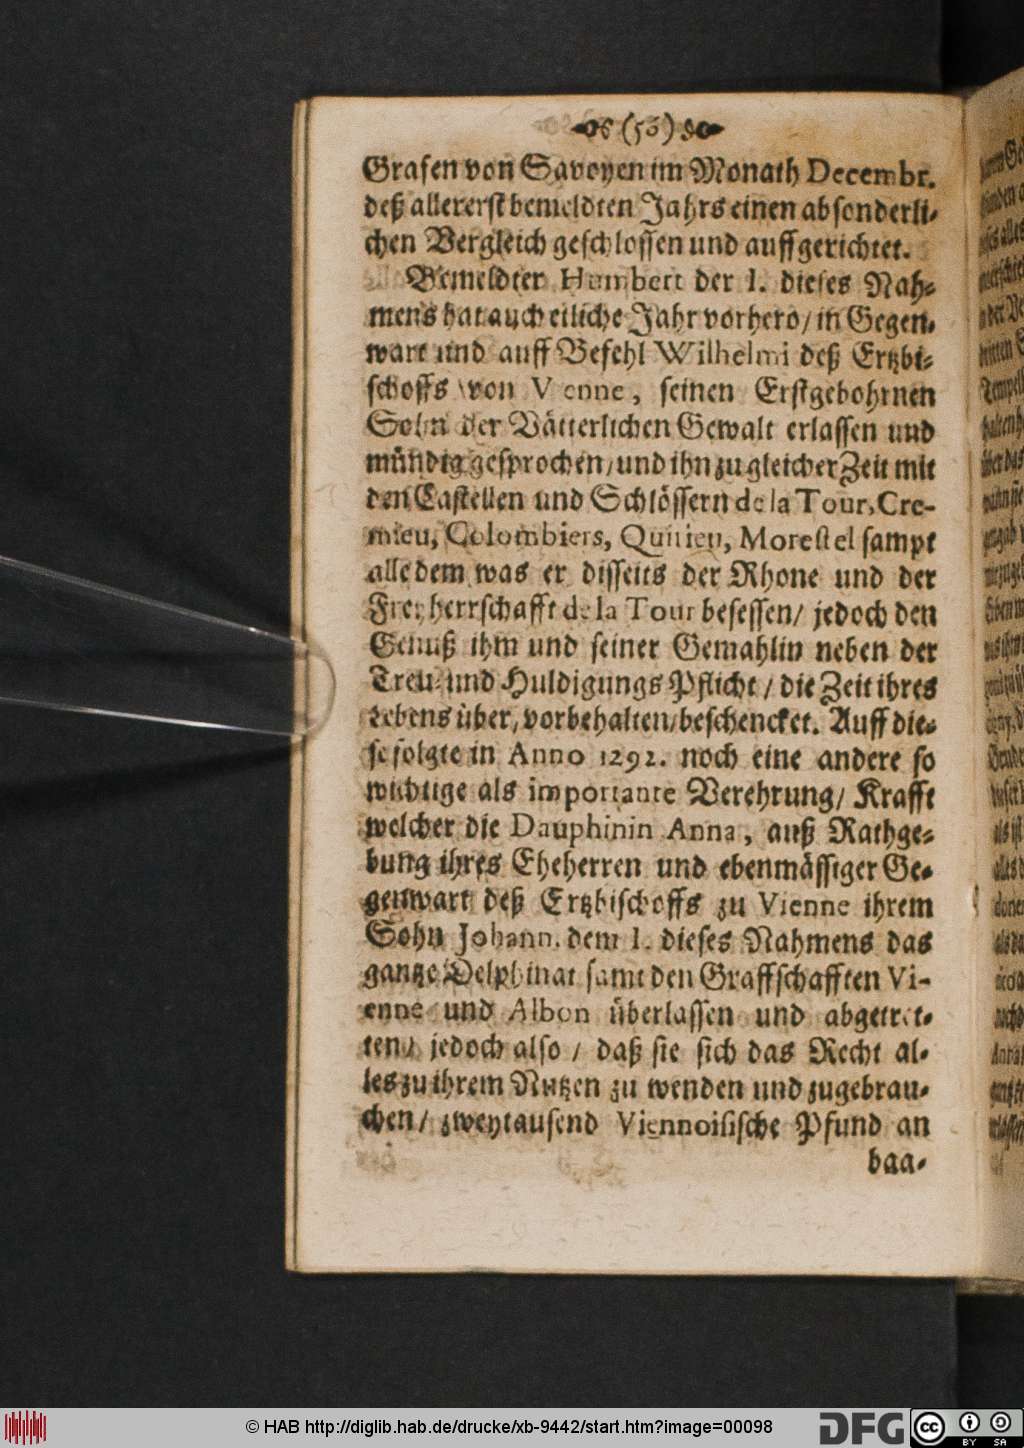 (56)
Grafen von Savoyen im Monath Decembr.
deß allererst bemeldten Jahrs einen absonderli-
chen Vergleich geschlossen und auffgerichtet.
Bemeldter Humbert der I. dieses Nah-
mens hat auch etliche Jahr vorhero/ in Gegen-
wart und auff Befehl Wilhelmi deß Ertzbi-
schoffs von Vienne, seinen Erstgebohrnen
Sohn der Vätterlichen Gewalt erlassen und
mündig gesprochen/ und ihn zu gleicher Zeit mit
den Castellen und Schlössern de la Tour, Cre-
mieu, Colombiers, Quirieu, Morestel sampt
alle dem was er disseits der Rhone und der
Freyherrschafft de la Tour besessen/ jedoch den
Genuß ihm und seiner Gemahlin neben der
Treu- und Huldigungs Pflicht/ die Zeit ihres
Lebens über/ vorbehalten/ beschencket. Auff die-
se folgte in Anno 1292. noch eine andere so
wichtige als importante Verehrung/ Krafft
welcher die Dauphinin Anna, auß Rathge-
bung ihres Eheherren und ebenmässiger Ge-
genwart deß Ertzbischoffs zu Vienne ihrem
Sohn Johann. dem I. dieses Nahmens das
gantze Delphinat samt den Graffschafften Vi-
enne und Albon überlassen und abgetret-
ten/ jedoch also/ daß sie sich das Recht al-
les zu ihrem Nutzen zu wenden und zugebrau-
chen/ zweytausend Viennoisische Pfund an
baa-
© HAB http://diglib.hab.de/drucke/xb-9442/start.htm?image=00098
DFG
cc
BY SA